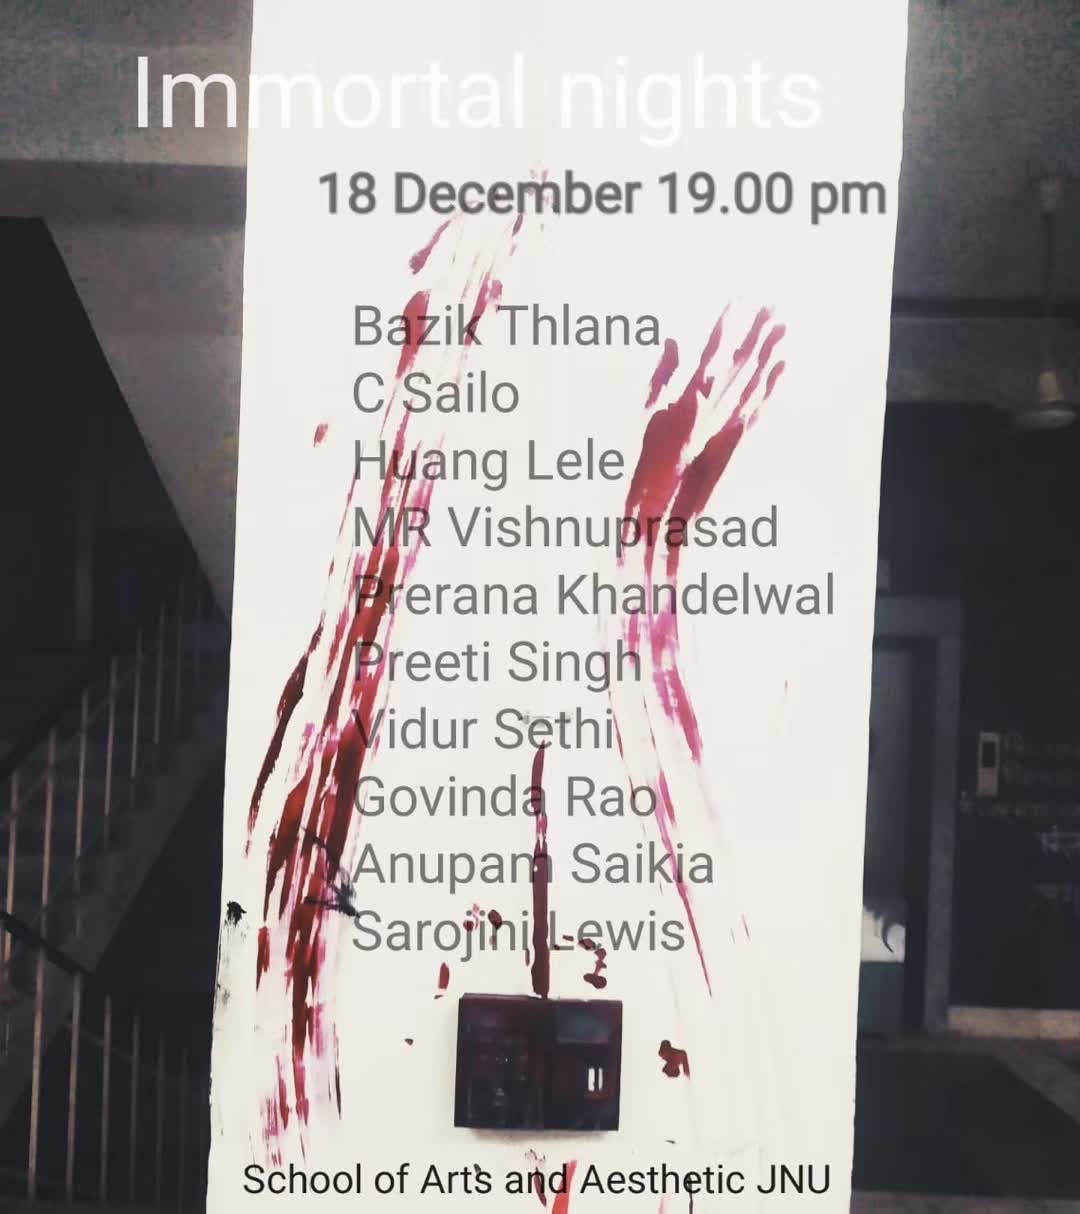 Immortal nights
18 December 19.00 pm
Bazik Thlana
C Sailo
Huang Lele
MR Vishnuprasad
Prerana Khandelwal
Preeti Singh
Vidur Sethi
Govinda Rao
Anupam Saikia
Sarojini Lewis
School of Arts and Aesthetic JNU